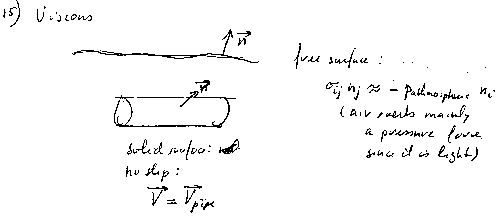 15) Viscous
n
free surface : . . . . . . .
σij nj ≈ - Patmospheric ni
(air exerts mainly
a pressure force
since it is light)
n
solid surface:
no slip :
V = Vpipe